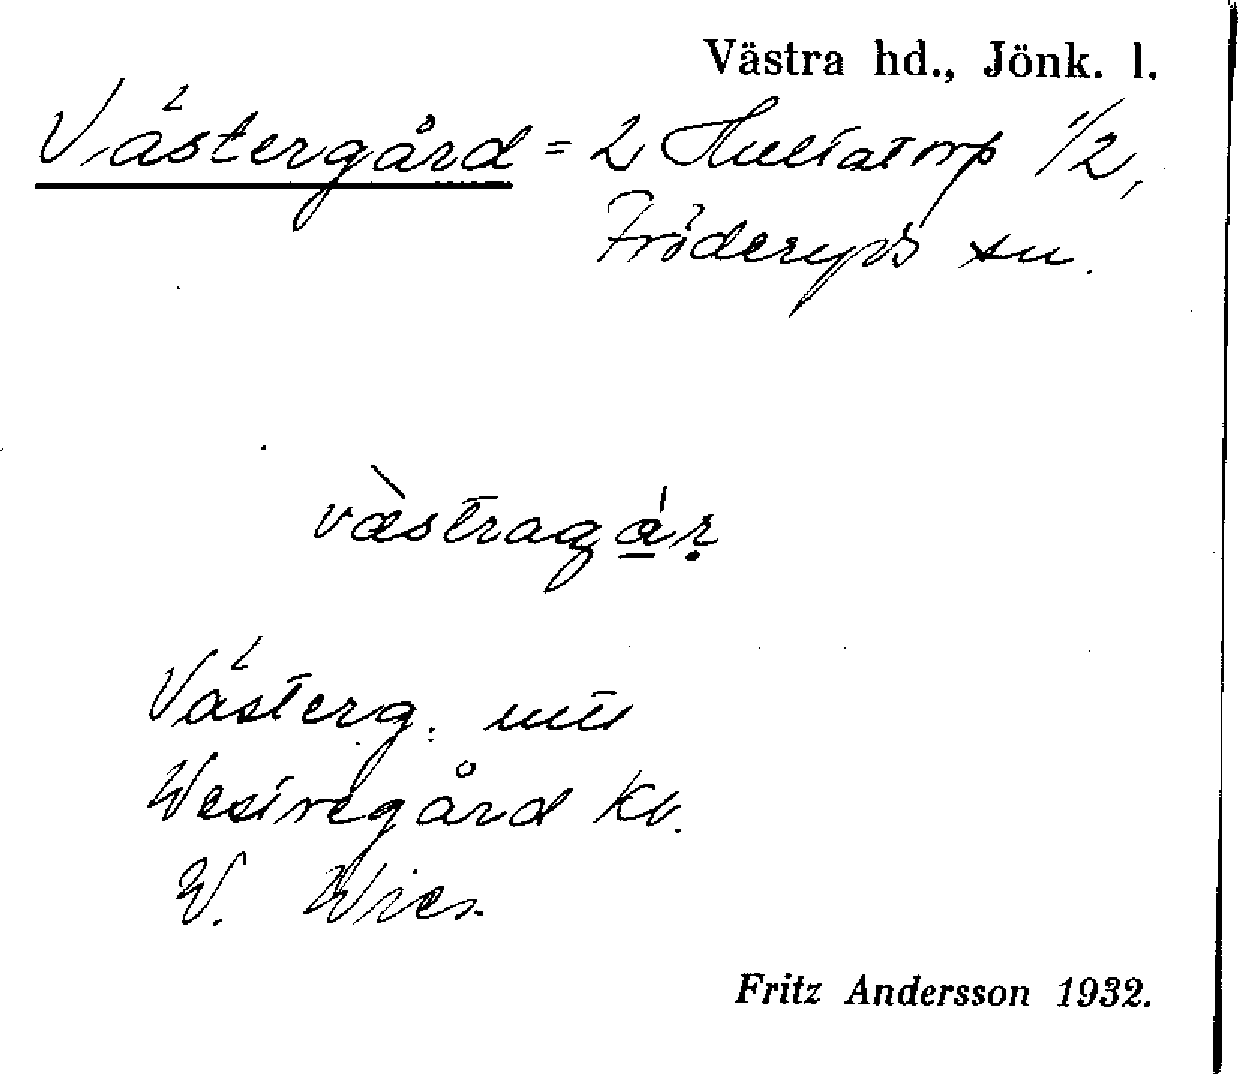 Västra hd., Jönk. l.
Västergård = 2 Hultatorp 1/2,
Fröderyds sn.
væ̀stragá̱ṛ
Västerg. utt
Westregård Kv.
W. Wies.
Fritz Andersson 1932.